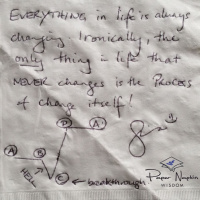 EVERYTHING in life is always
changing. Ironically, the
only thing in life that
NEVER changes is the PROCESS
of change itself!
D A'
A B
HELL
C ← breakthrough
Paper Napkin
WISDOM